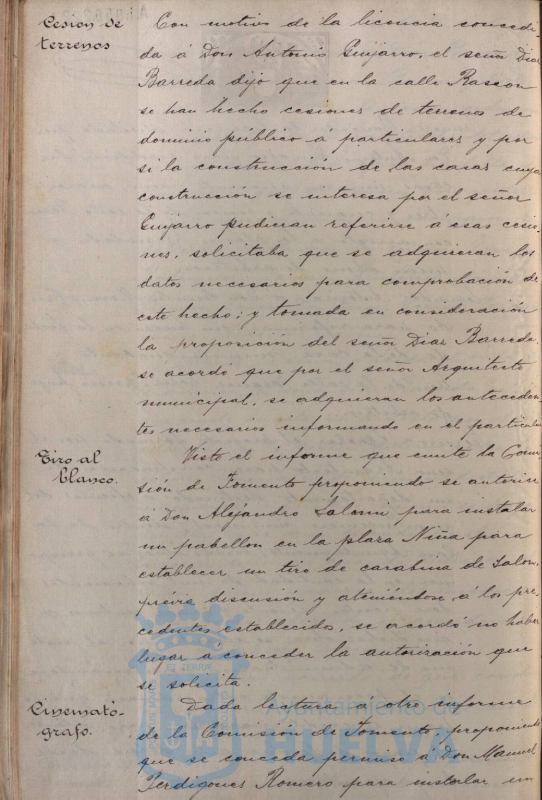 Cesion de
terrenos
Con motivo de la licencia concedi-
da á Don Antonio Guijarro, el señor Diaz
Barreda dijo que en la calle Rascon
se han hecho cesiones de terrenos de
dominio público á particulares y por
si la construcción de las casas cuya
construcción se interesa por el señor
Guijarro pudieran referirse á esas cesio-
nes, solicitaba que se adquieran los
datos necesarios para comprobación de
este hecho; y tomada en consideración
la proposición del señor Diaz Barreda,
se acordó que por el señor Arquitecto
municipal, se adquieran los anteceden-
tes necesarios informando en el particular
Tiro al
blanco.
Visto el informe que emite la Comi-
sión de Fomento proponiendo se autorice
á Don Alejandro para instalar
un pabellon en la plaza Niña para
establecer un tiro de carabina de Salon,
prévia discusión y ateniéndose á los pre-
cedentes establecidos, se acordó no haber
lugar á conceder la autorización que
se solicita.
Cinemató-
grafo.
Dada lectura á otro informe
de la Comisión de Fomento, proponiendo
que se conceda permiso á Don Manuel
Perdigones Romero para instalar un
Ayuntamiento de
HUELVA